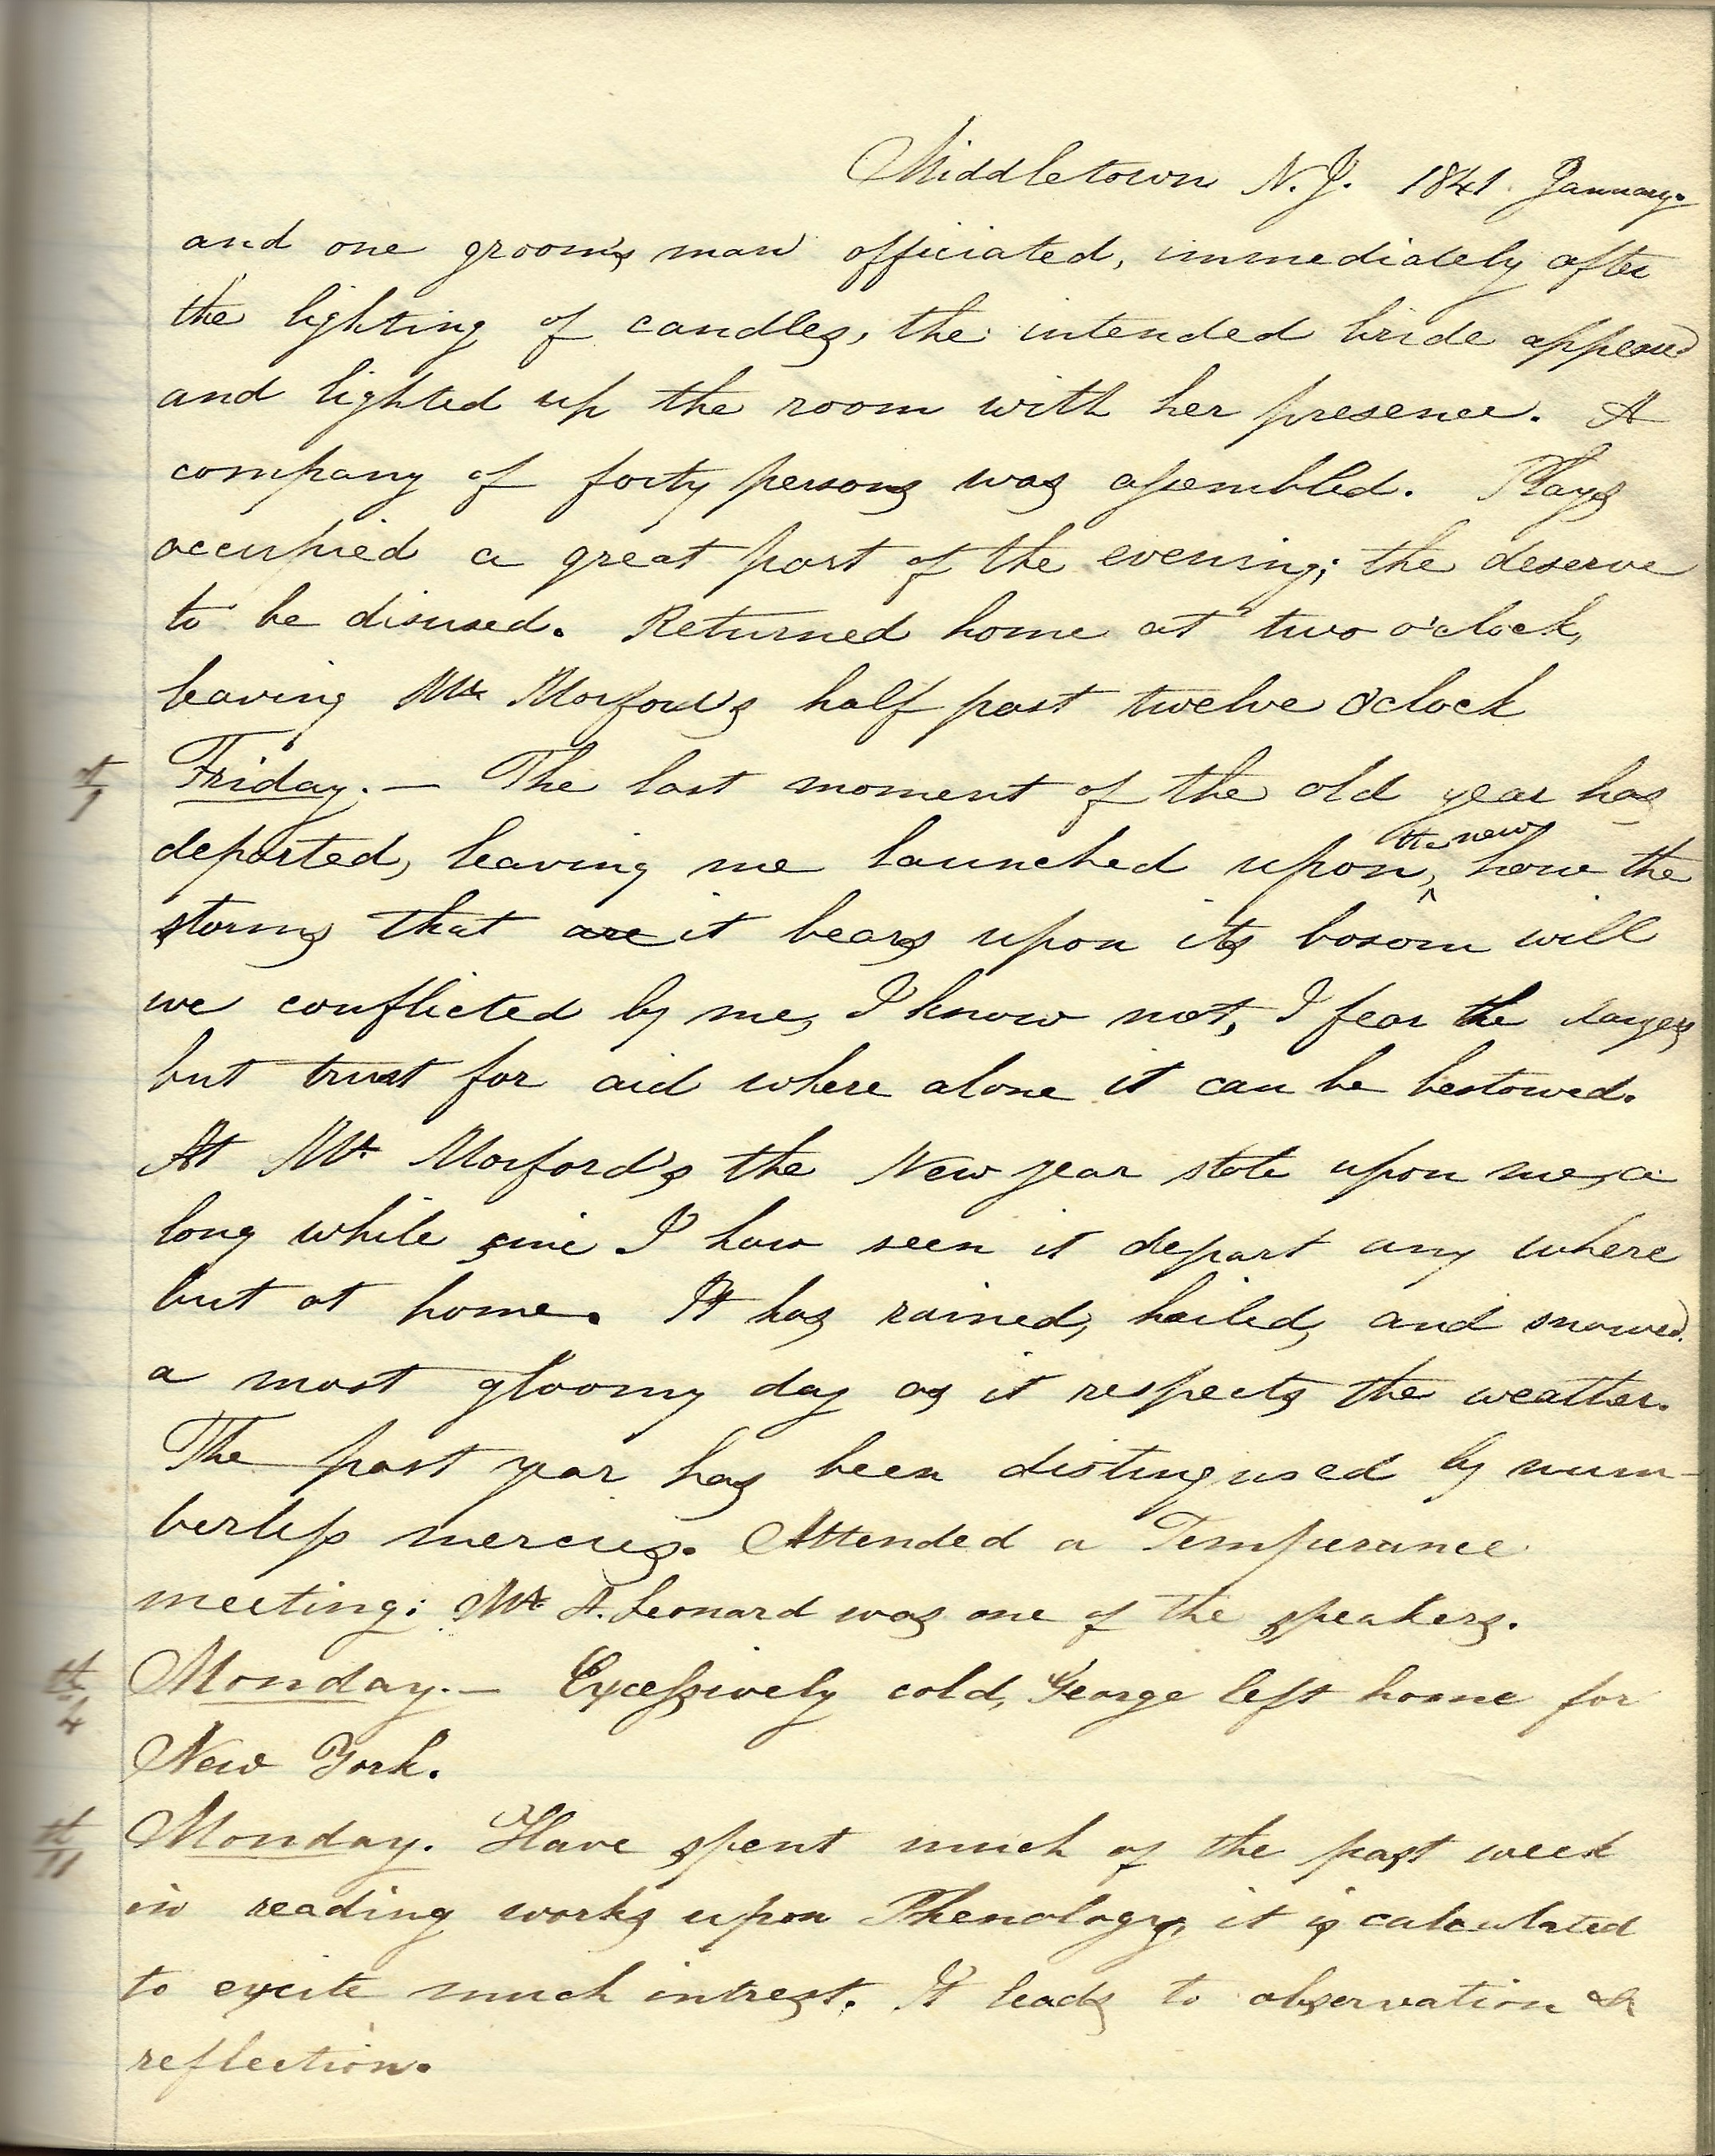 Middletown N.J. 1841. January.
and one groom's man officiated, immediately after
the lighting of candles, the intended bride appeared
and lighted up the room with her presence. A
company of forty persons was assembled. Plays
occupied a great part of the evening; the deserve
to be disused. Returned home at two o'clock,
leaving Mr Morford's half past twelve o'clock
st/1 Friday. — The last moment of the old year has
departed, leaving me launched upon the new, how the
storms that are it bears upon its bosom will
we conflicted by me, I know not, I fear the
but trust for aid where alone it can be bestowed.
At Mr Morford's the New year stole upon me, a
long while sinc I have seen it depart any where
but at home. It has rained, hailed, and snowed.
a most gloomy day as it respects the weather.
The past year has been distingused by num-
berless mercies. Attended a Temperance
meeting: Mr A. Leonard was one of the speakers.
th/4 Monday. — Excessively cold, George left home for
New York.
st/11 Monday. Have spent much of the past week
in reading works upon Phenology, it is calculated
to excite much intrest. It leads to observation &
reflection.